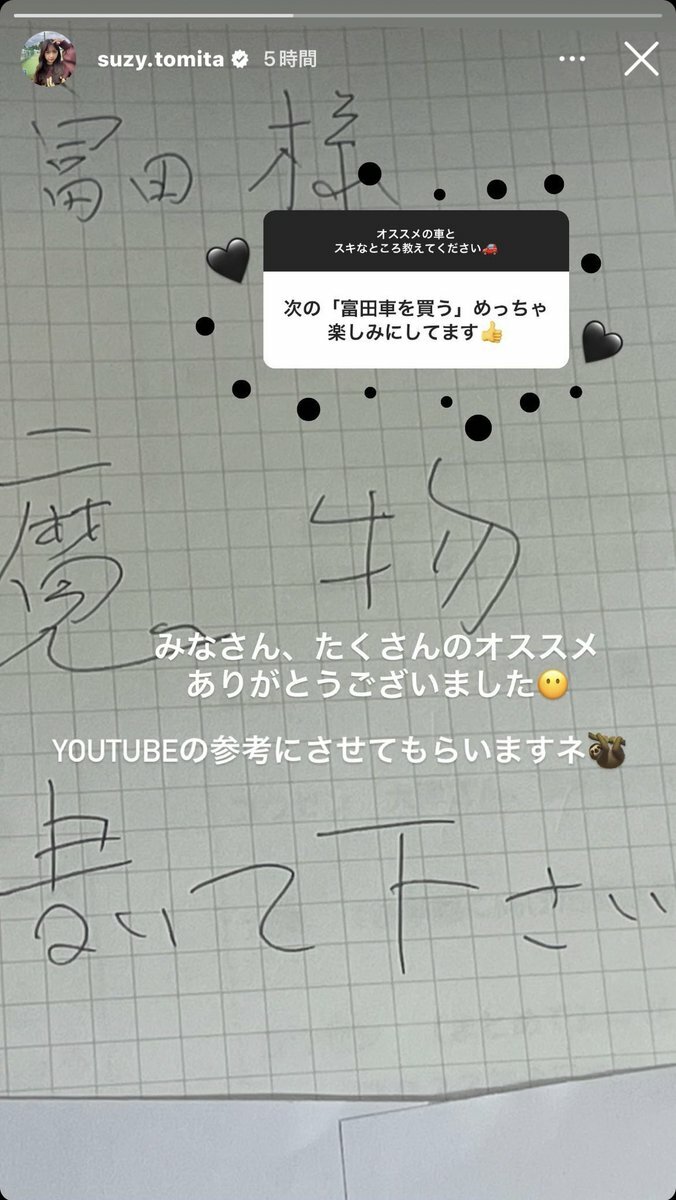 suzy.tomita 5時間
冨田 様
オススメの車と
スキなところ教えてください🚗
次の「富田車を買う」めっちゃ
楽しみにしてます👍
物
みなさん、たくさんのオススメ
ありがとうございました😶
YOUTUBEの参考にさせてもらいますネ🦥
書いて下さい